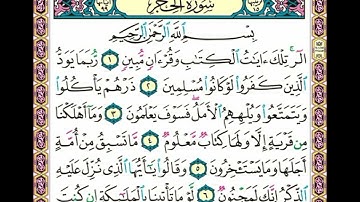 سورة الحجر
بِسْمِ اللَّهِ الرَّحْمَٰنِ الرَّحِيمِ
الٓرۚ تِلْكَ ءَايَٰتُ ٱلْكِتَٰبِ وَقُرْءَانٍ مُّبِينٍ ١ رُّبَمَا يَوَدُّ
ٱلَّذِينَ كَفَرُوا۟ لَوْ كَانُوا۟ مُسْلِمِينَ ٢ ذَرْهُمْ يَأْكُلُوا۟
وَيَتَمَتَّعُوا۟ وَيُلْهِهِمُ ٱلْأَمَلُ ۖ فَسَوْفَ يَعْلَمُونَ ٣ وَمَآ أَهْلَكْنَا
مِن قَرْيَةٍ إِلَّا وَلَهَا كِتَابٌ مَّعْلُومٌ ٤ مَّا تَسْبِقُ مِنْ أُمَّةٍ
أَجَلَهَا وَمَا يَسْتَـْٔخِرُونَ ٥ وَقَالُوا۟ يَٰٓأَيُّهَا ٱلَّذِى نُزِّلَ عَلَيْهِ
ٱلذِّكْرُ إِنَّكَ لَمَجْنُونٌ ٦ لَّوْ مَا تَأْتِينَا بِٱلْمَلَٰٓئِكَةِ إِن كُنتَ